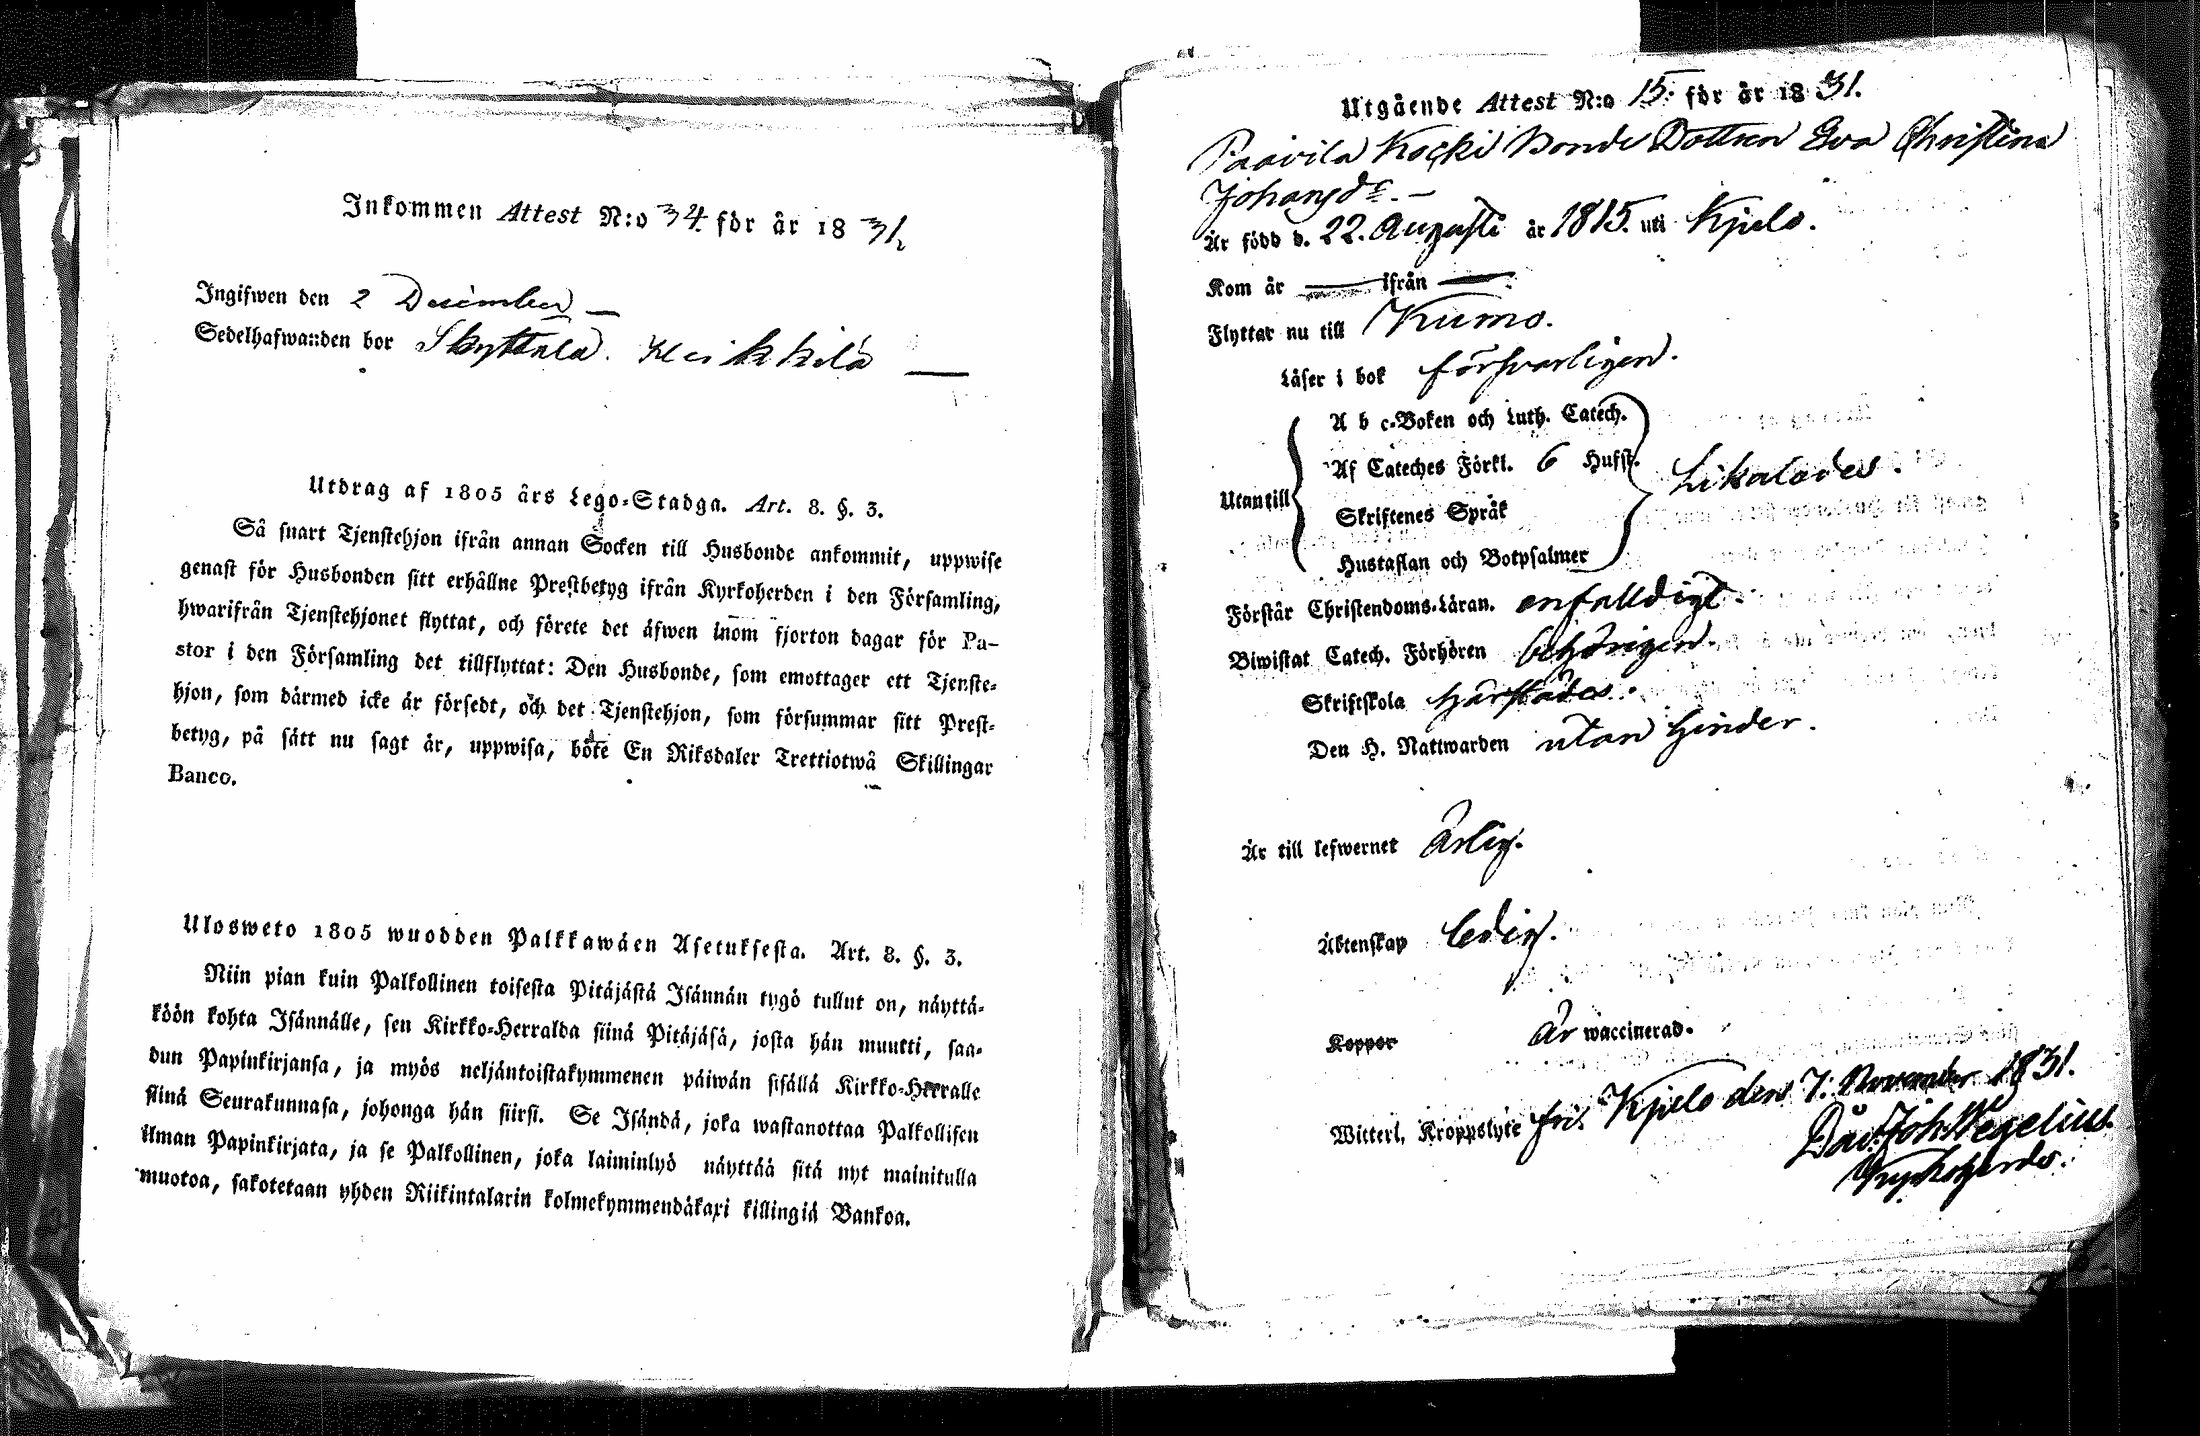 Inkommen Attest N:o 34. för år 1831.
Ingifwen den 2 December
Sedelhafwanden bor Skyttälä. Heikkilä
Utdrag af 1805 års Lego-Stadga. Art. 8. §. 3.
Så snart Tjenstehjon ifrån annan Socken till Husbonde ankommit, uppwise
genast för Husbonden sitt erhållne Prestbetyg ifrån Kyrkoherden i den Församling,
hwarifrån Tjenstehjonet flyttat, och förete det äfwen inom fjorton dagar för Pa-
stor i den Församling det tillflyttat: Den Husbonde, som emottager ett Tjenste-
hjon, som därmed icke är försedt, och det Tjenstehjon, som försummar sitt Prest-
betyg, på sätt nu sagt är, uppwisa, böte En Riksdaler Trettiotwå Skillingar
Banco.
Ulosweto 1805 wuodden Palkkawäen Asetuksesta. Art. 8. §. 3.
Niin pian kuin Palkollinen toisesta Pitäjästä Isännän tygö tullut on, näyttä-
köön kohta Isännälle, sen Kirkko-Herralda siinä Pitäjäsä, josta hän muutti, saa-
dun Papinkirjansa, ja myös neljäntoistakymmenen päiwän sisällä Kirkko-Herralle
siinä Seurakunnasa, johonga hän siirsi. Se Isändä, joka wastanottaa Palkollisen
ilman Papinkirjata, ja se Palkollinen, joka laiminlyö näyttää sitä nyt mainitulla
muotoa, sakotetaan yhden Riikintalarin kolmekymmendäkaxi killingiä Bankoa.
Utgående Attest N:o 15. för år 1831.
Paavila Kocki Bonde Dottren Eva Christina
Johansdr.
Är född d. 22. Augusti år 1815. uti Kjulo.
Kom år — ifrån —
Flyttar nu till Kumo.
Läser i bok försvarligen.
A b c-Boken och Luth. Catech.
Af Cateches Förkl. 6 Hufst.
Utantill Likaledes.
Skriftenes Språk
Hustaflan och Botpsalmer
Förstår Christendoms-Läran. enfalldigt.
Biwistat Catech. Förhören behörigen.
Skriftskola härstädes.
Den H. Nattwarden utan hinder.
Är till lefwernet ärlig.
Äktenskap ledig.
Koppor är waccinerad.
Witterl. Kroppslyte fri. Kjulo den 7. November 1831.
Dav. Joh. Wegelius.
Kyrkoherde.